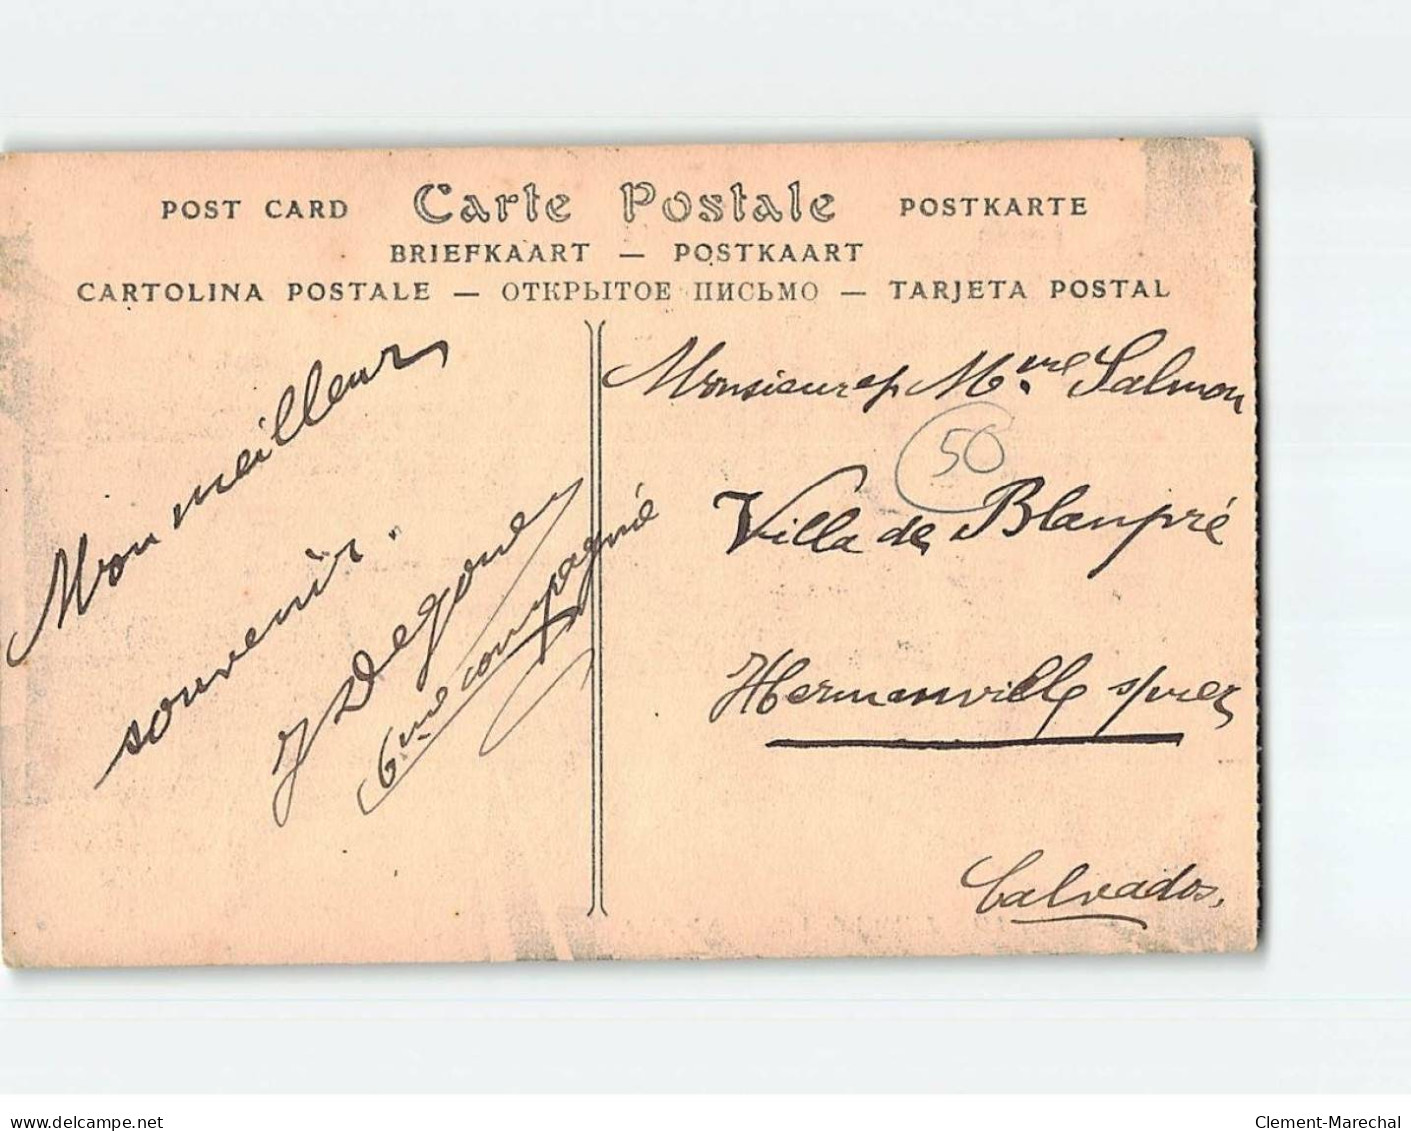 POST CARD Carte Postale POSTKARTE
BRIEFKAART — POSTKAART
CARTOLINA POSTALE — ОТКРЫТОЕ ПИСЬМО — TARJETA POSTAL
Mon meilleur
souvenir.
6me compagnie
Monsieur et Mme Salmon
50
Villa de Blanpré
Hermanville s/mer
Calvados,
www.delcampe.net
Clement-Marechal